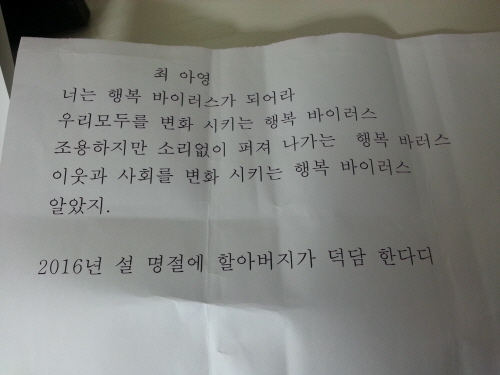 최 아영
너는 행복 바이러스가 되어라
우리모두를 변화 시키는 행복 바이러스
조용하지만 소리없이 퍼져 나가는 행복 바러스
이웃과 사회를 변화 시키는 행복 바이러스
알았지.
2016년 설 명절에 할아버지가 덕담 한다디